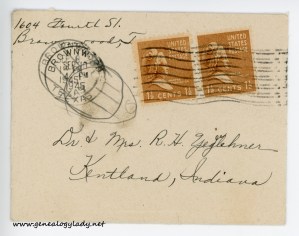 1604 Fourth St.
Brownwood, T
BROWNWOOD
PM
TEXAS
UNITED STATES
1½ CENTS 1½
UNITED STATES
1½ CENTS 1½
Dr. & Mrs. R. H. Zeglehner
Kentland, Indiana
www.genealogylady.net